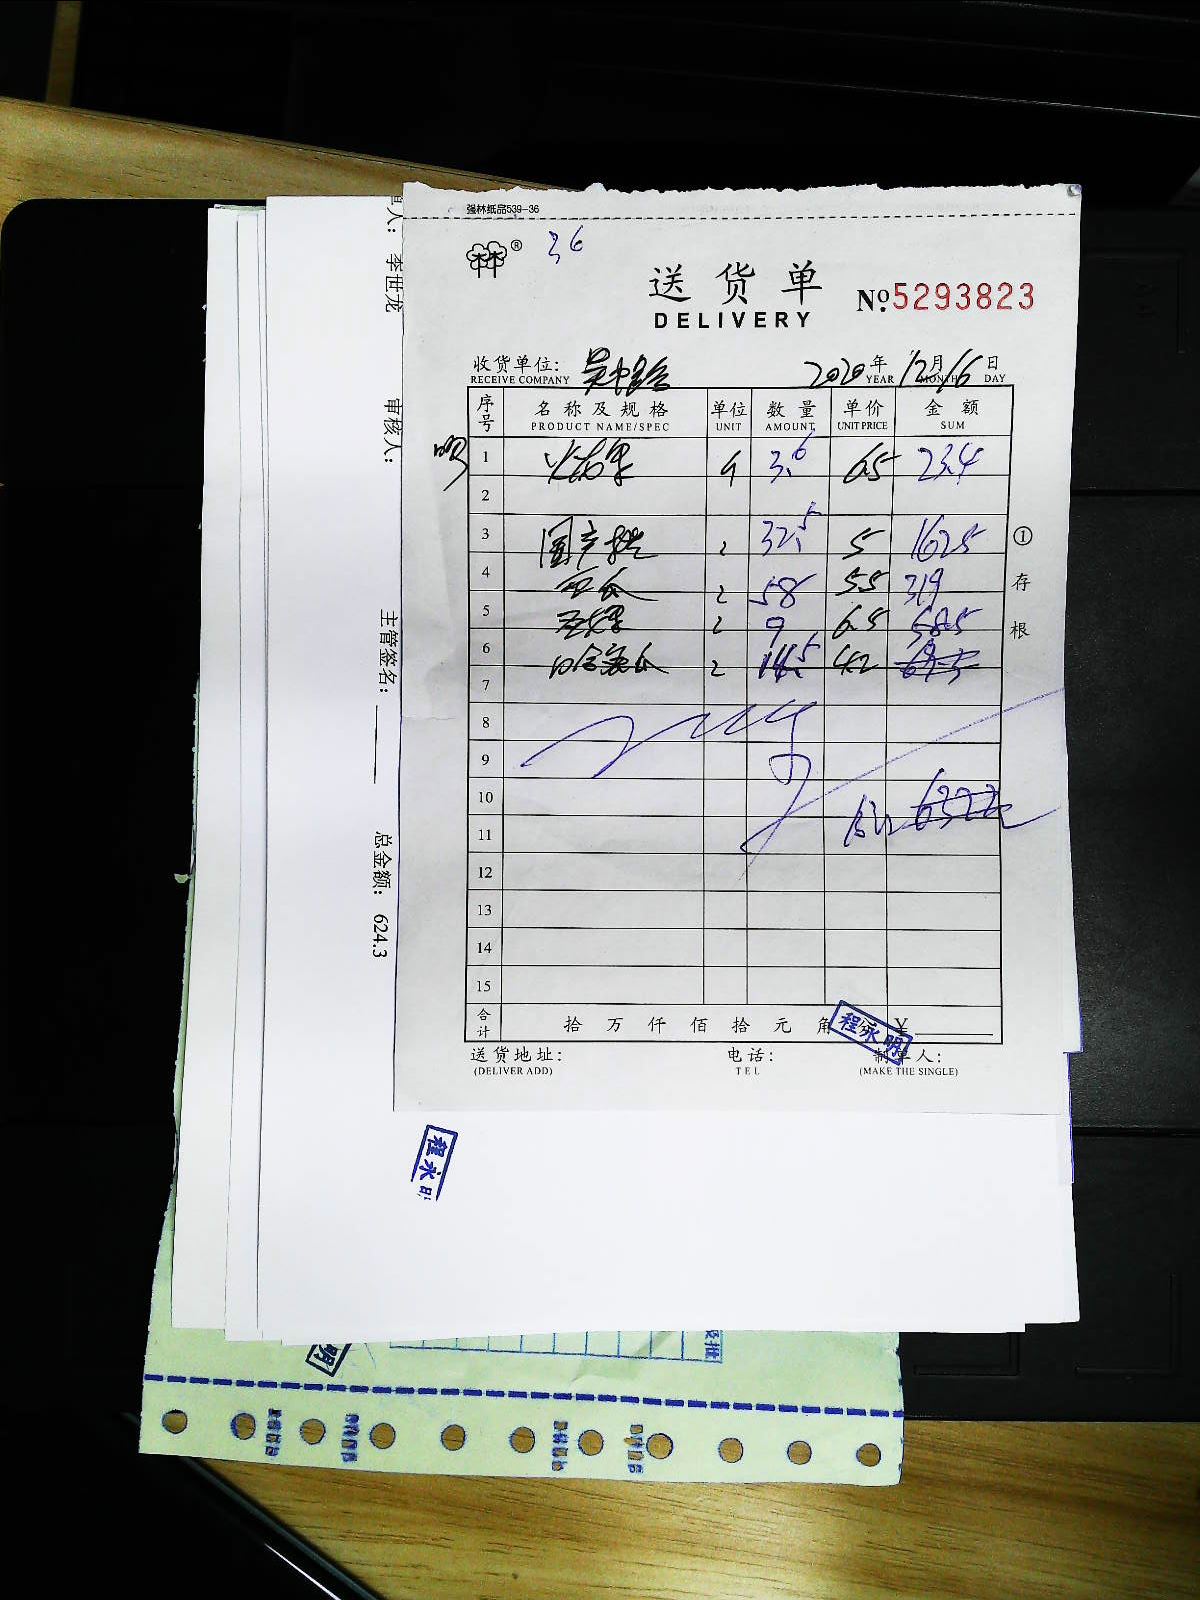 强林纸品539-36
36
送货单
DELIVERY
№.5293823
收货单位:
RECEIVE COMPANY
2020年12月16日
YEAR MONTH DAY
序号 名称及规格 单位 数量 单价 金额
PRODUCT NAME/SPEC UNIT AMOUNT UNIT PRICE SUM
1 火龙果 3.6 6.5 23.4
2
3 国产提 2 32.5 5 162.5
4 2 58 5.5 319
5 2 9 6.5 58.5
6 哈密瓜 2 14.5 4.2
7
8
9
10
11 合计
12
13
14
15
合计 拾 万 仟 佰 拾 元 角 分 ¥
送货地址: 电话: 制单人:
(DELIVER ADD) TEL (MAKE THE SINGLE)
①存根
程永明
人: 李世龙
审核人:
主管签名:
总金额: 624.3
程永明
明